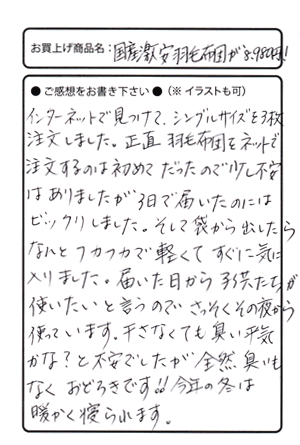 お買上げ商品名： 国産激安羽毛布団が8,980円!
● ご感想をお書き下さい ●（※ イラストも可）
インターネットで見つけて、シングルサイズを3枚
注文しました。正直 羽毛布団をネットで
注文するのは初めてだったので少し不安
はありましたが3日で届いたのには
ビックリしました。そして袋から出したら
なんとフカフカで軽くてすぐに気に
入りました。届いた日から子供たちが
使いたいと言うので さっそくその夜から
使っています。干さなくても臭い平気
かな？と不安でしたが 全然臭いも
なく おどろきです!! 今年の冬は
暖かく寝られます。